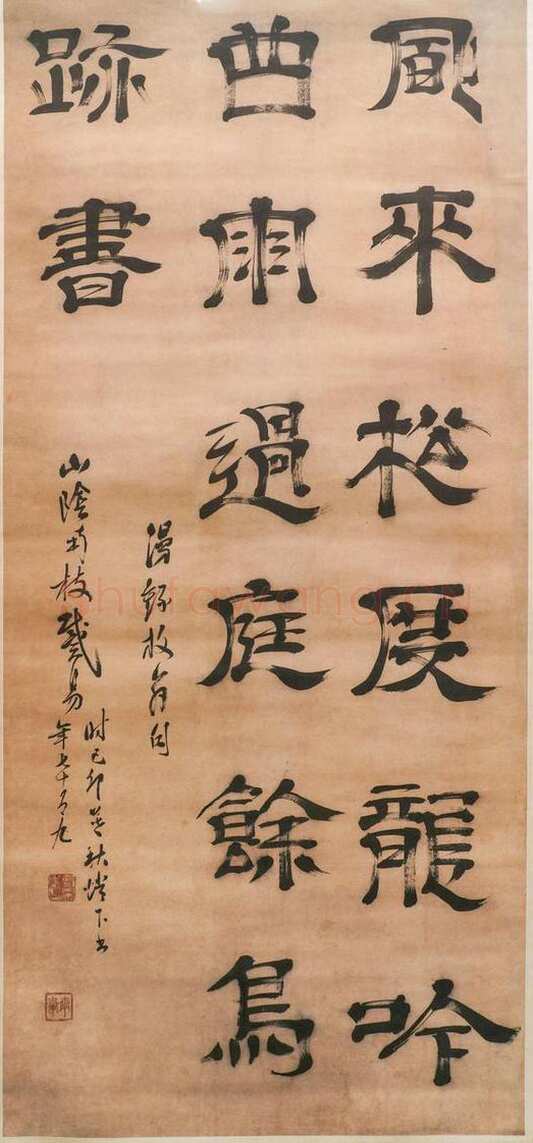 風來松度龍吟
曲雨過庭餘鳥
跡書
漫録放翁句
時己卯暮秋燈下書
山陰 枝戴易年七十有九